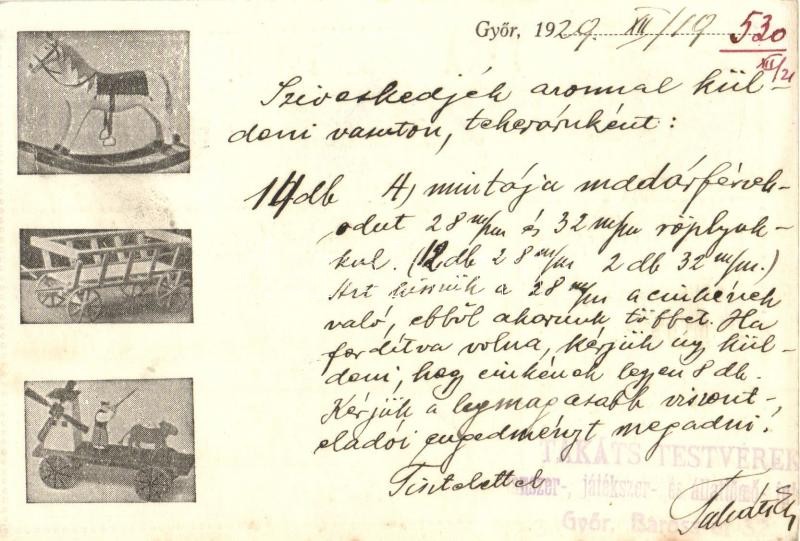 Győr, 1929. XII/19
530
XII/21
Sziveskedjék azonnal kül-
deni vasuton, teheráruként:
14 db 4) mintája madárfészek-
odut 28 m/m és 32 m/m röplyuk-
kal. (12 db 28 m/m 2 db 32 m/m.)
Azt hisszük a 28 m/m a cinkének
való, ebből akarunk többet. Ha
forditva volna, kérjük úgy kül-
deni, hogy cinkének legyen 8 db.
Kérjük a legmagasabb viszont-
eladói engedményt megadni!
Tisztelettel
TAKÁTS TESTVÉREK
játékszer- és
Győr, Baross